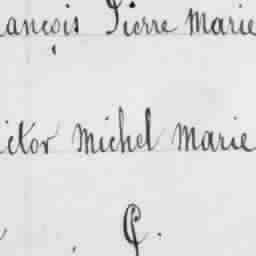 ançois Pierre Marie
ictor Michel Marie